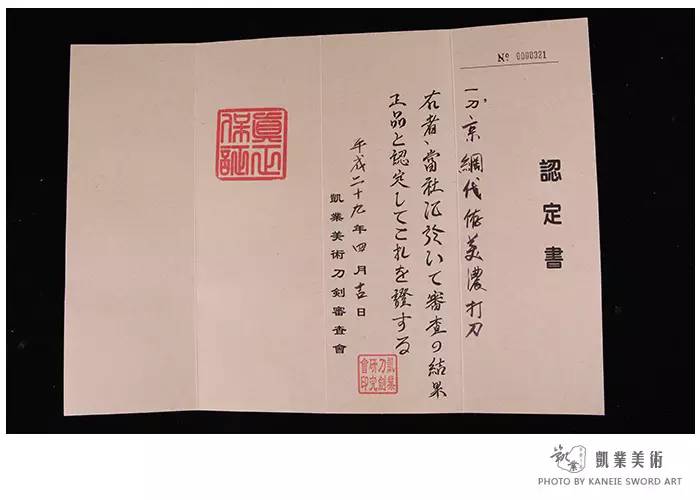 認定書
Nº 0000321
一刀、京網代佐美濃打刀
右者、當社に於いて審査の結果
正品と認定してこれを證する
平成二十九年四月吉日
凱業美術刀剣審査會
凱業刀劍研究會印
真正保証
凱業美術
PHOTO BY KANEIE SWORD ART